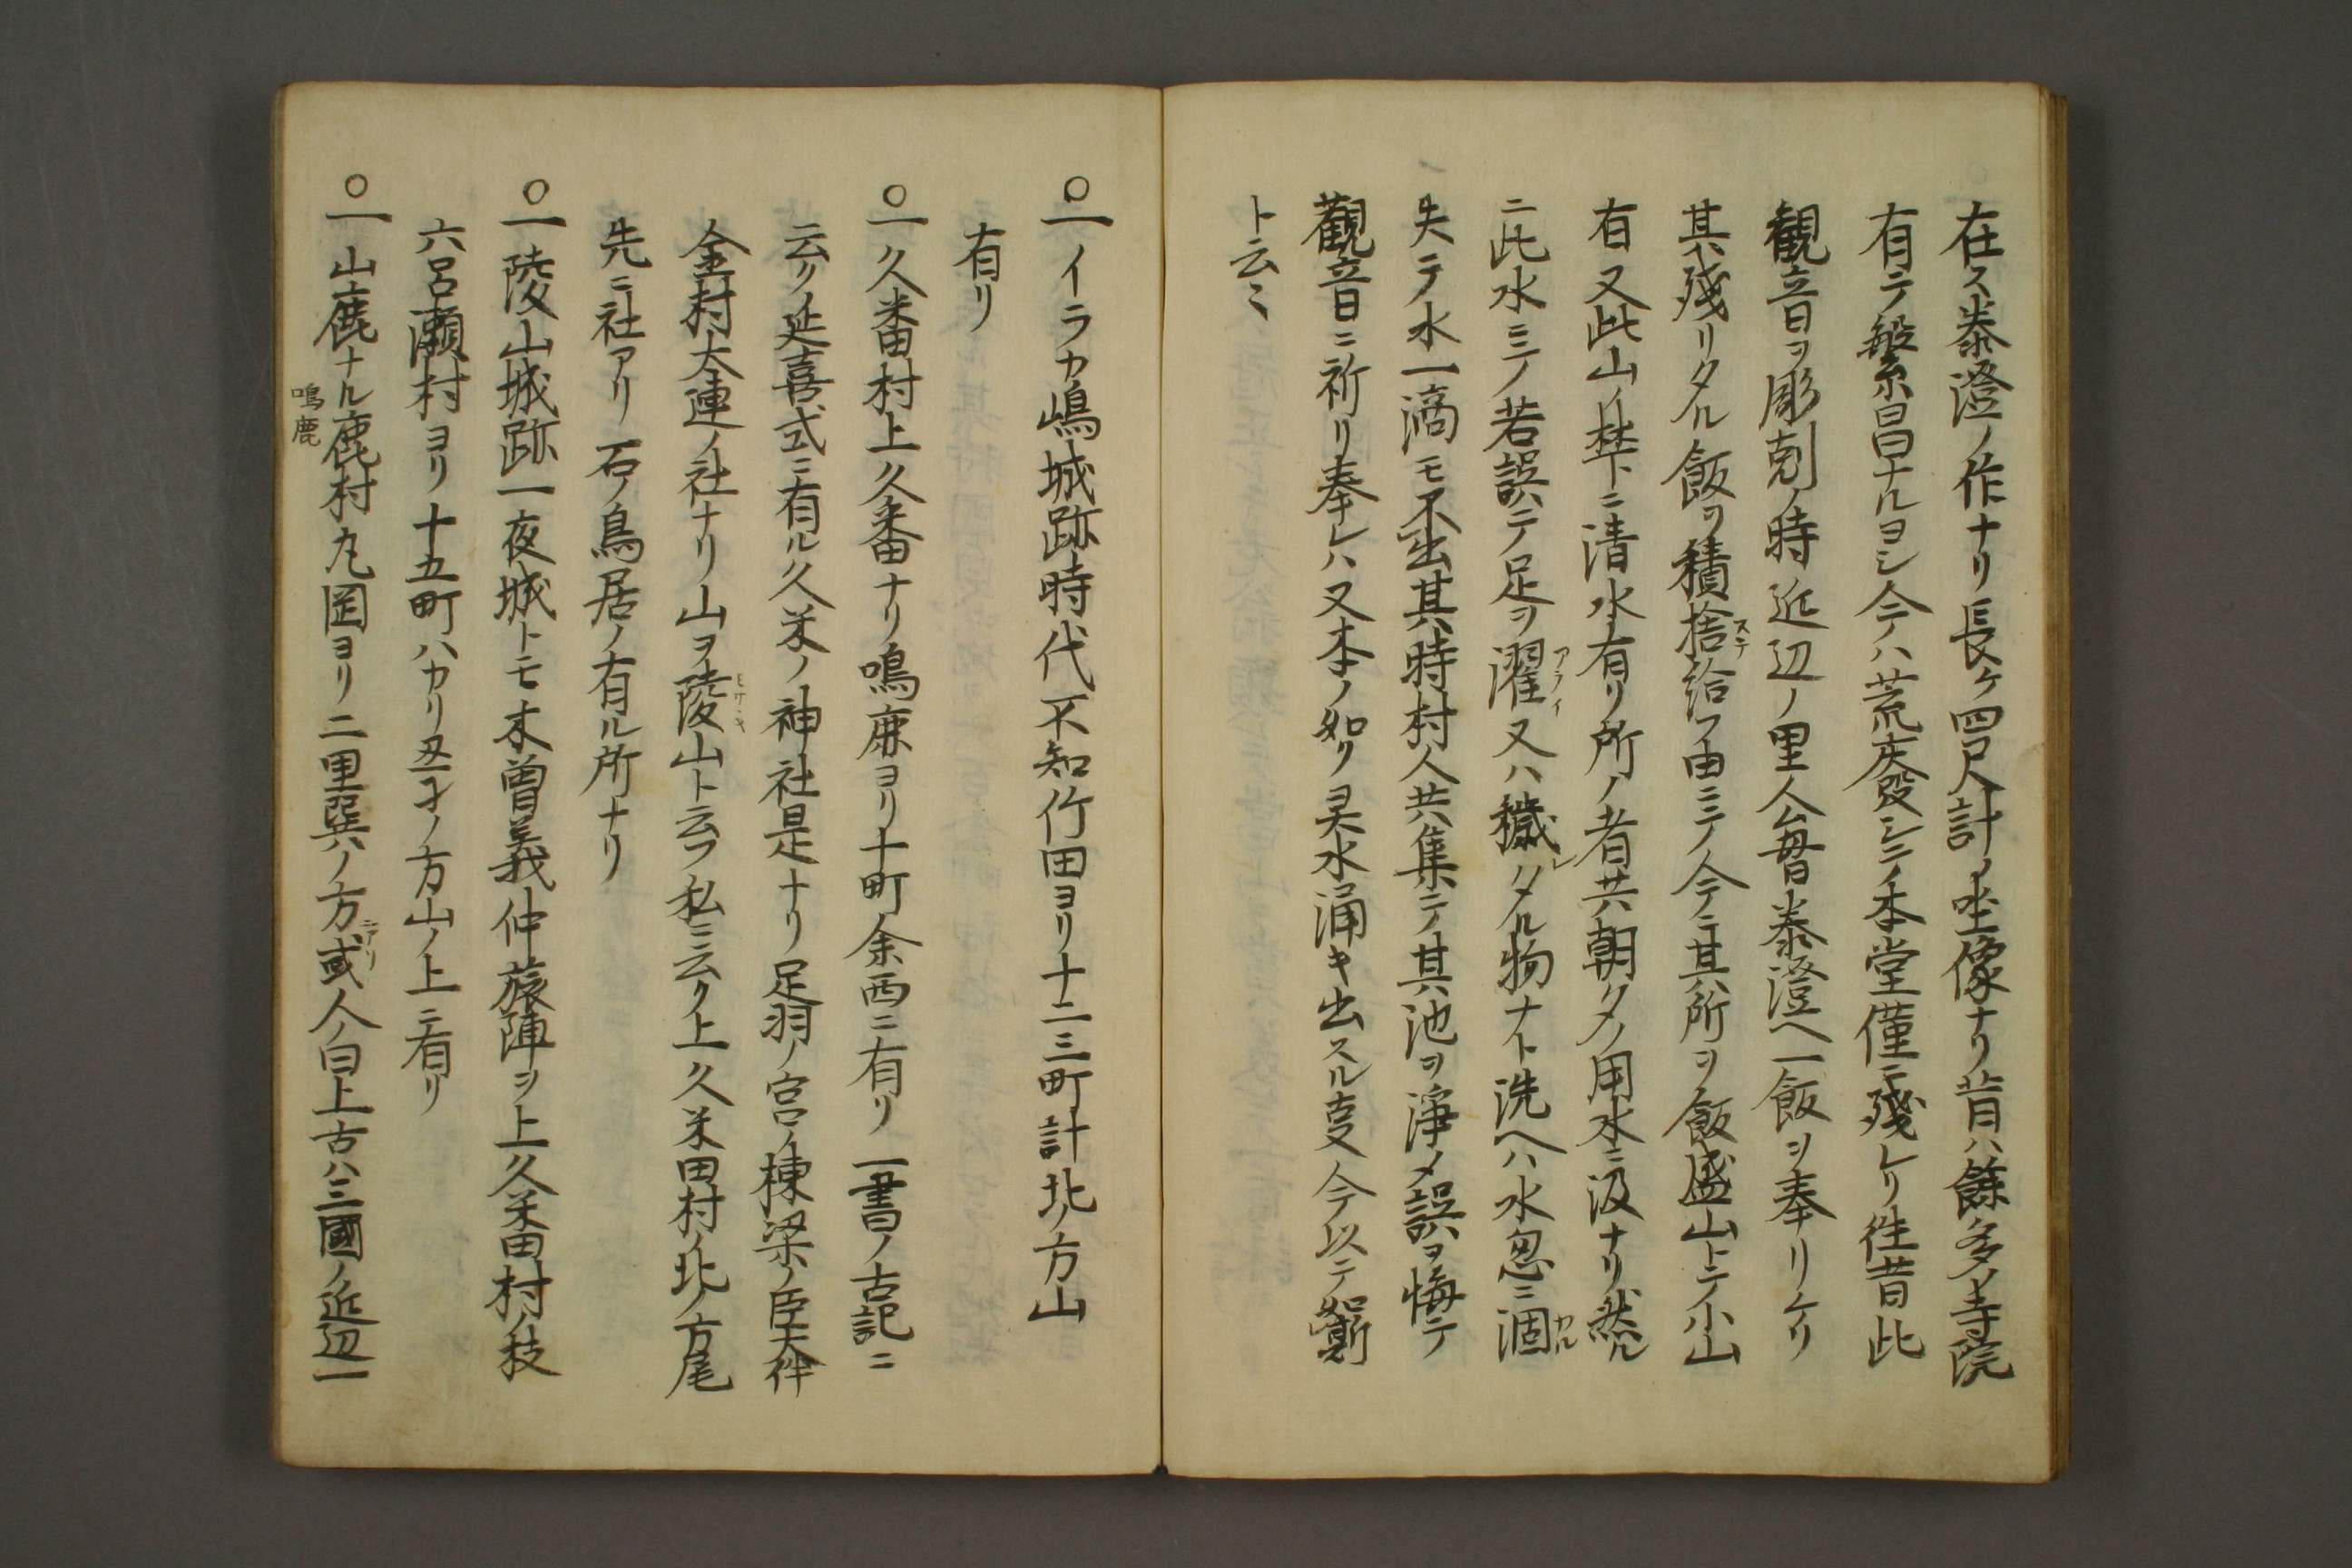 在ス泰澄ノ作ナリ長ケ四尺計ノ坐像ナリ昔ハ餘多ノ寺院
有テ繁昌ナルヨシ今ハ荒廃シテ本堂僅ニ殘レリ往昔此
観音ヲ彫刻ノ時近辺ノ里人毎日泰澄ヘ一飯ヲ奉リケリ
其殘リタル飯ヲ積捨給フ由ニテ今ニ其所ヲ飯盛山トテ小山
ステ
有又此山ノ梺下ニ清水有リ所ノ者共朝夕ノ用水ニ汲ナリ然ル
ニ此水ニテ若誤テ足ヲ濯又ハ穢レタル物ナト洗ヘハ水忽ニ涸
アライ
カル
失テ水一滴モ不出其時村人共集テ其池ヲ浄メ誤ヲ悔テ
觀音ニ祈リ奉レハ又本ノ如ク灵水涌キ出スル支今以テ如斯
ト云ミ
〇一イラカ嶋城跡時代不知竹田ヨリ十二三町計北ノ方山
有リ
〇一久番村上久番ナリ鳴鹿ヨリ十町余西ニ有リ一書ノ古記ニ
云ク延喜式ニ有ル久米ノ神社是ナリ足羽ノ宮ノ棟梁ノ臣大伴
金村大連ノ社ナリ山ヲ陵山ト云フ私ニ云ク上久米田村ノ北ノ方尾
先ニ社アリ石ノ鳥居ノ有ル所ナリ
〇一陵山城跡一夜城トモ木曽義仲旅陣ヲ上久米田村ノ枝
六呂瀬村ヨリ十五町ハカリ丑寅ノ方山ノ上ニ有リ
〇一山鹿ナル鹿村丸岡ヨリ二里巽ノ方ニアリ或人ノ曰上古ハ三國ノ近辺一
鳴鹿